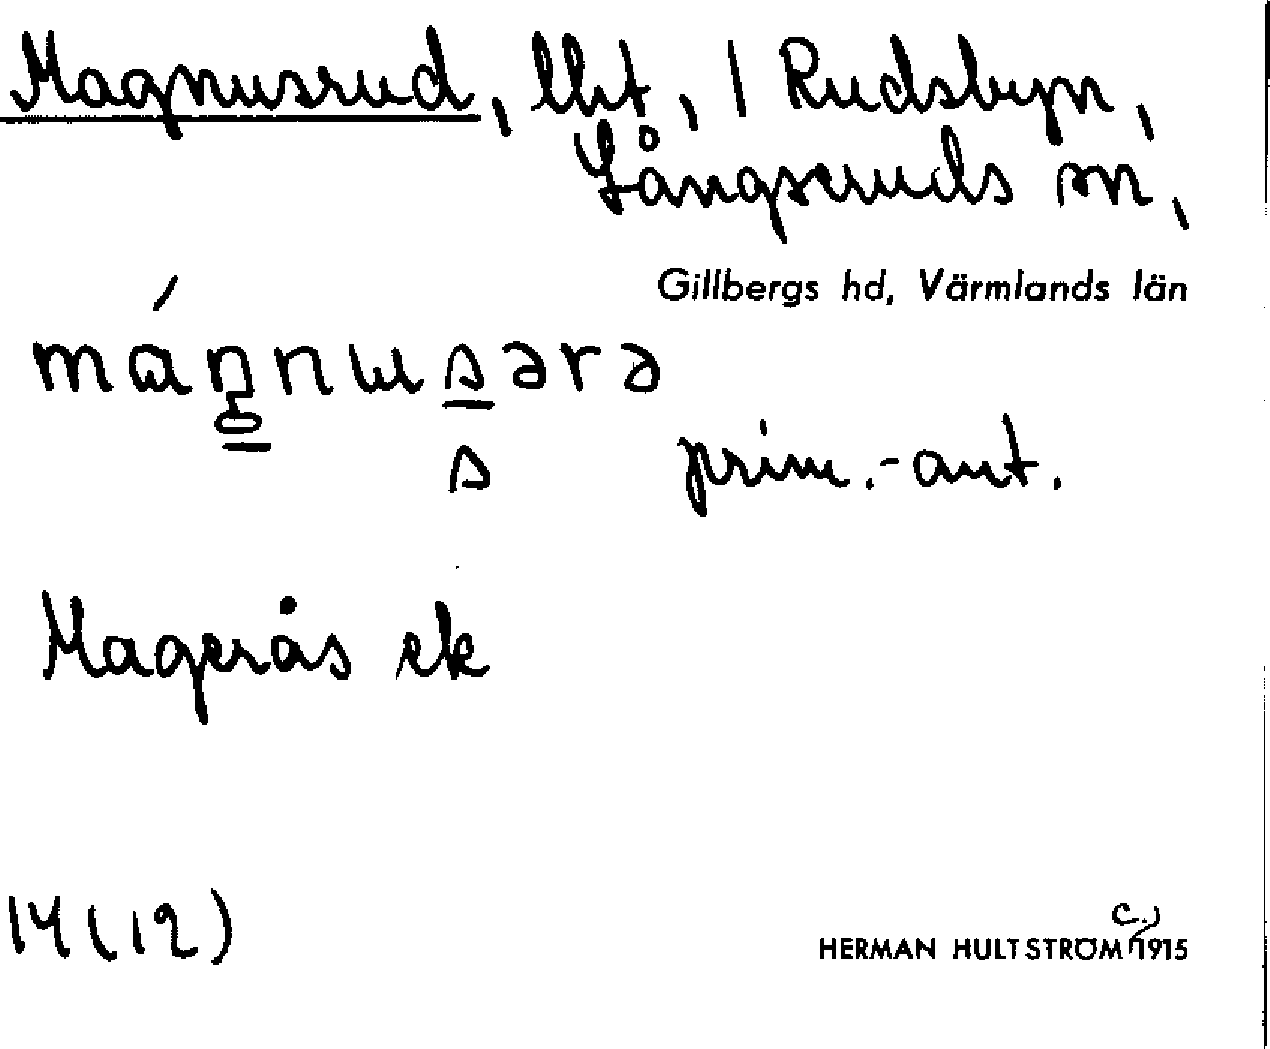 Magnusrud, lht, 1 Rudsbyn,
Långseruds sn,
Gillbergs hd, Värmlands län
prim.-ant.
Magerås ek
14 (12)
c.)
HERMAN HULTSTRÖM 1915